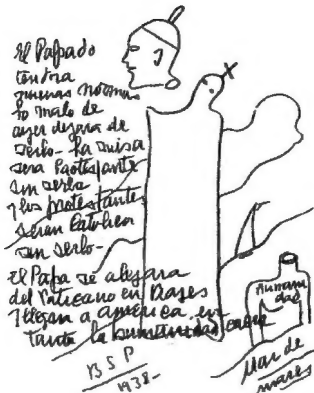 El Papado
tendra
nuevas normas
lo malo de
ayer dejara de
serlo - la misa
sera Protestante
sin serlo
y los protestantes
seran Catolicos
sin serlo -
El Papa se alejara
del Vaticano en Viajes
y llegara a America en
tanto la humanidad caera
BSP
1938-
Humani
dad
Mar de
mares